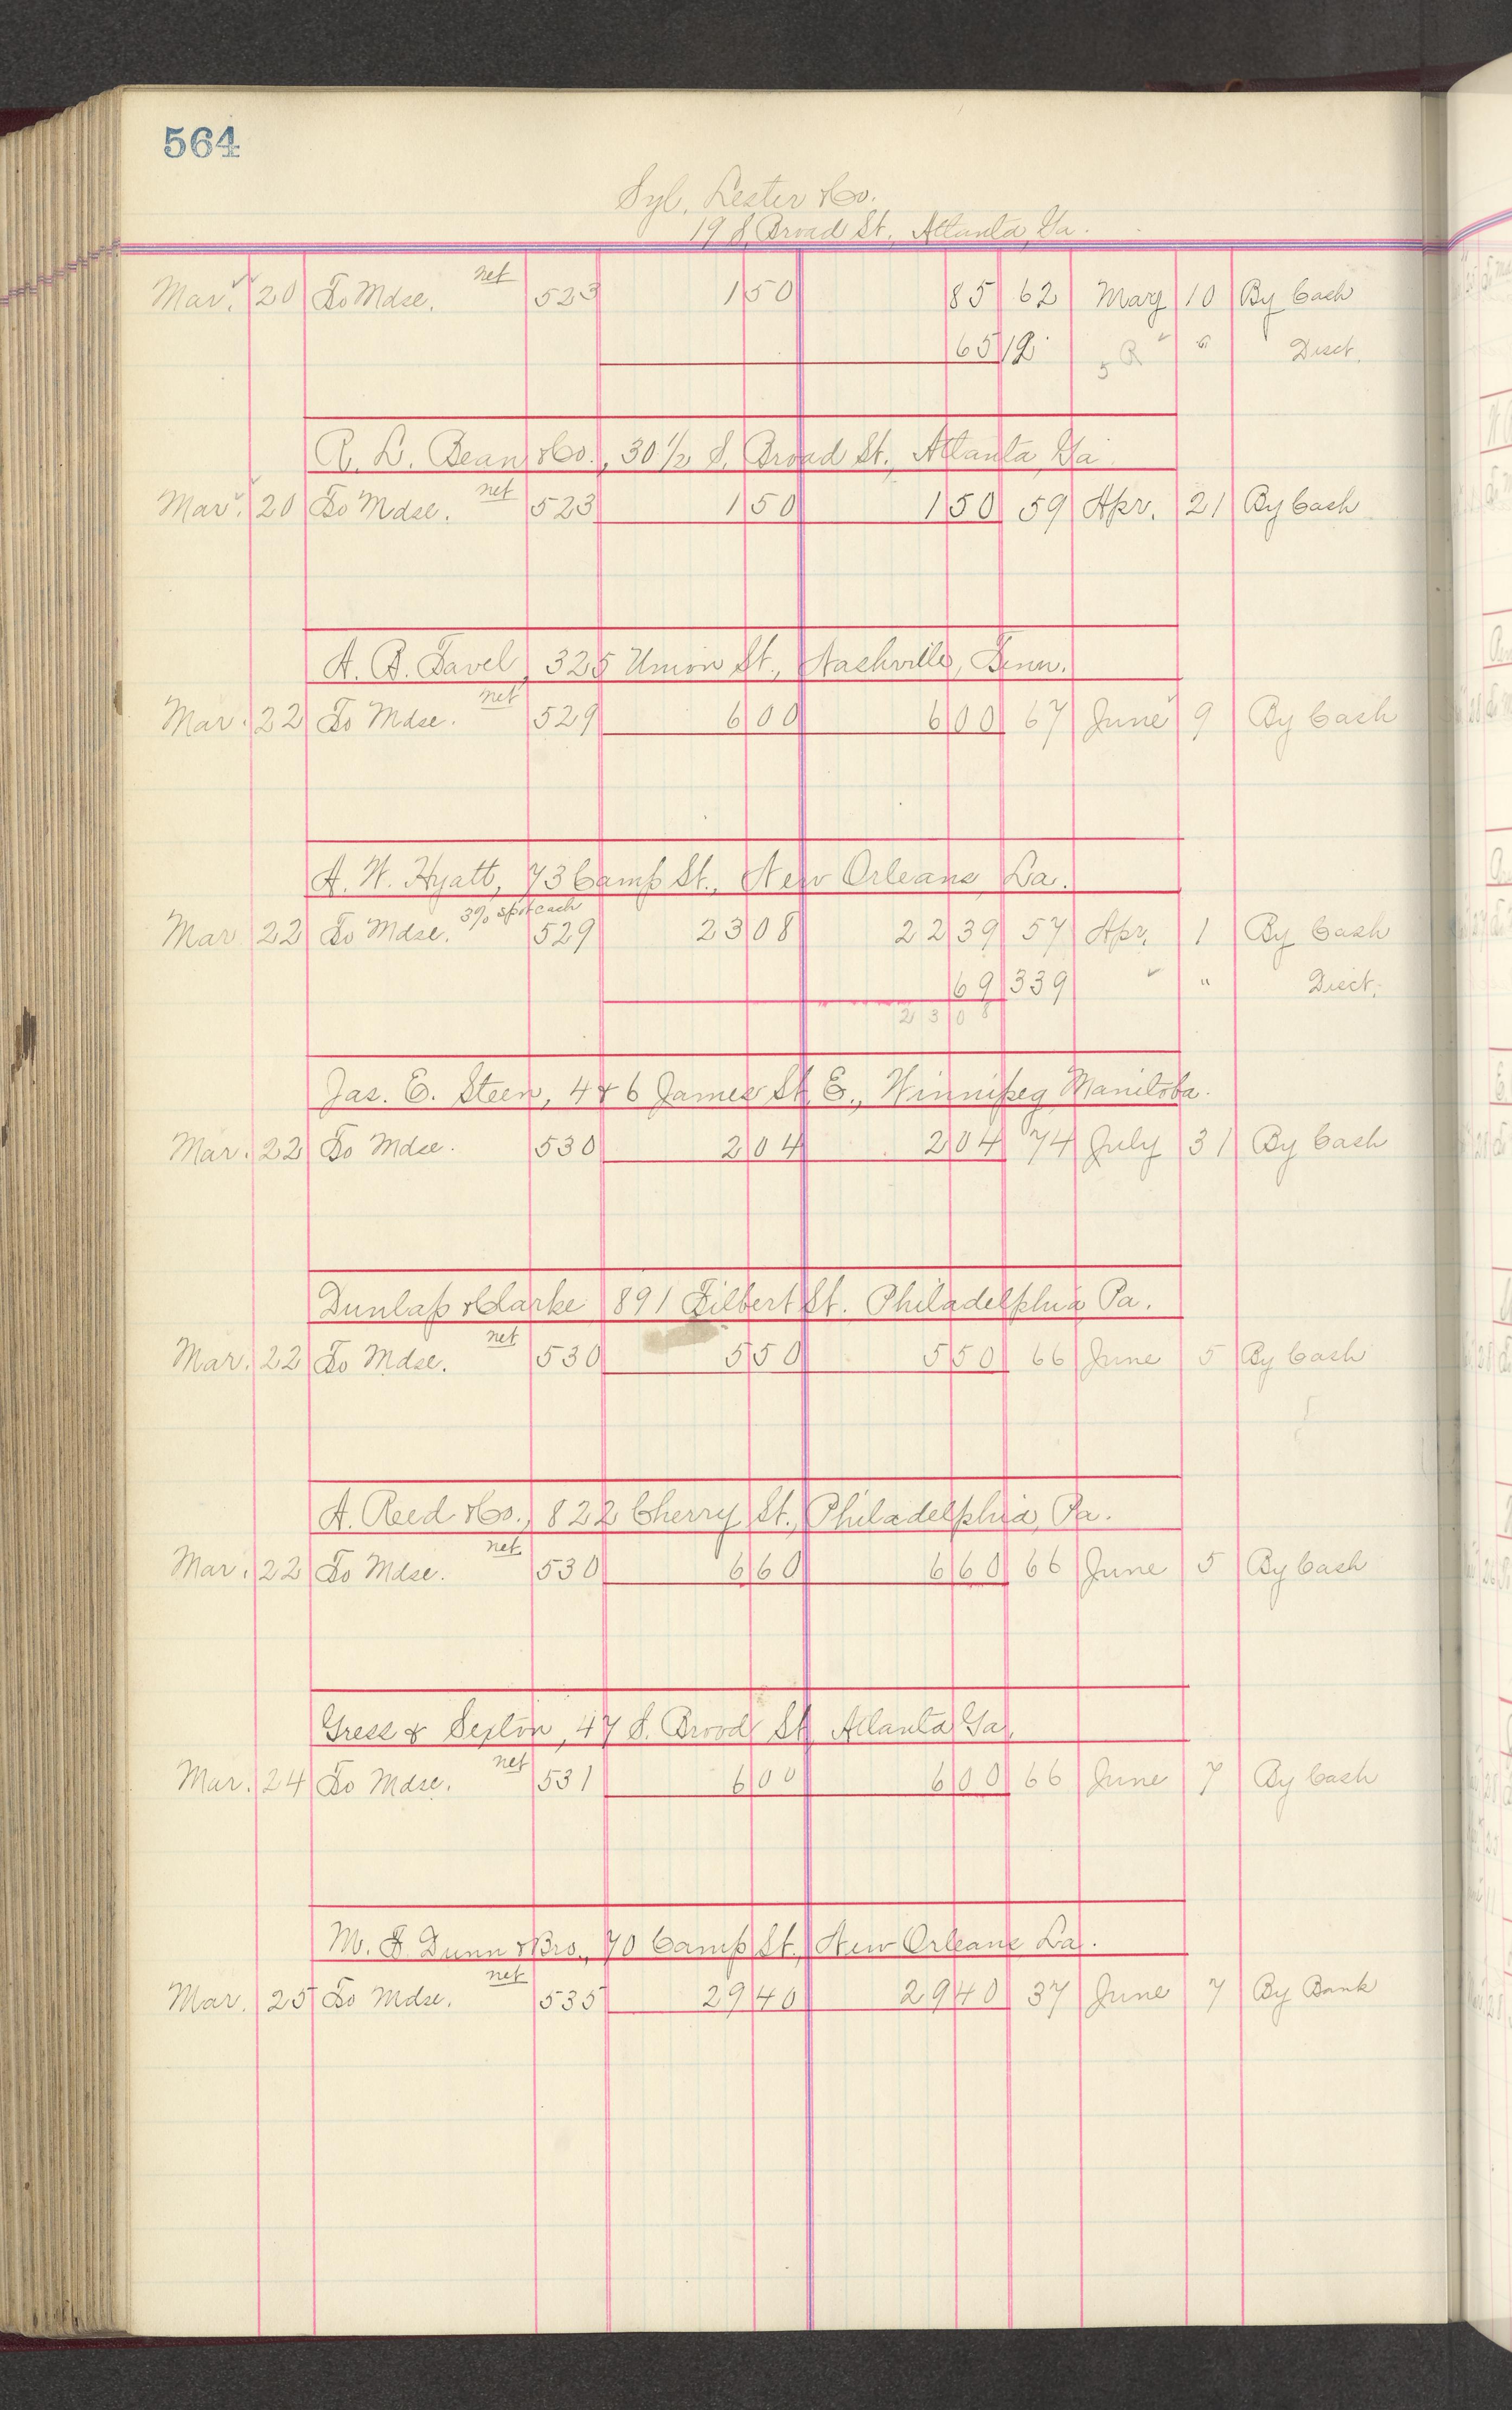 564
Syl. Lester & Co.
19 S. Broad St., Atlanta, Ga.
Mar. 20 To Mdse. net 523 150 85 62 May 10 By Cash
65 12 " " Disct.
R. L. Bean & Co., 30 1/2 S. Broad St., Atlanta, Ga
Mar. 20 To Mdse. net 523 150 150 59 Apr. 21 By Cash
A. B. Tavel, 325 Union St., Nashville, Tenn.
Mar. 22 To Mdse. net 529 600 600 67 June 9 By Cash
A. W. Hyatt, 73 Camp St., New Orleans, La.
Mar. 22 To Mdse. 3% spot cash 529 2308 2239 57 Apr. 1 By Cash
69 339 " Disct.
2308
Jas. E. Steen, 4 & 6 James St. E., Winnipeg Manitoba.
Mar. 22 To Mdse. 530 204 204 74 July 31 By Cash
Dunlap & Clarke 891 Filbert St. Philadelphia, Pa.
Mar. 22 To Mdse. net 530 550 550 66 June 5 By Cash
A. Reed & Co., 822 Cherry St., Philadelphia, Pa.
Mar. 22 To Mdse. net 530 660 660 66 June 5 By Cash
Gress & Sexton, 47 S. Broad St. Atlanta, Ga.
Mar. 24 To Mdse. net 531 600 600 66 June 7 By Cash
M. F. Dunn & Bro., 70 Camp St., New Orleans La.
Mar. 25 To Mdse. net 535 2940 2940 37 June 7 By Bank